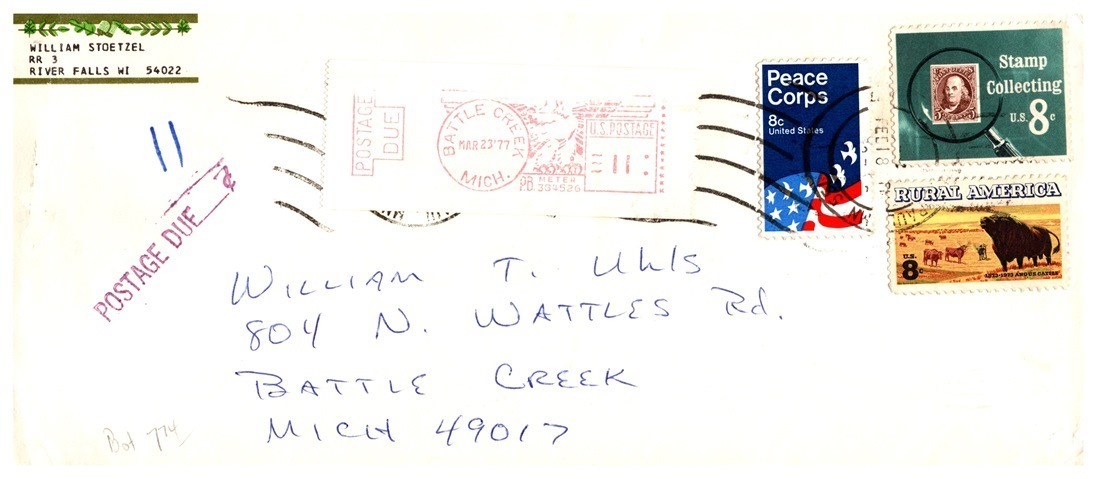 WILLIAM STOETZEL
RR 3
RIVER FALLS WI 54022
11
POSTAGE DUE ¢
POSTAGE DUE
BATTLE CREEK
MAR 23'77
MICH.
U.S. POSTAGE
11
PB METER
334529
Peace
Corps
8c
United States
Stamp
Collecting
U.S. 8c
RURAL AMERICA
U.S.
8c
1873-1973 ANGUS CATTLE
FEB
MN
PAUL
William T. Uhls
804 N. Wattles Rd.
Battle Creek
Mich 49017